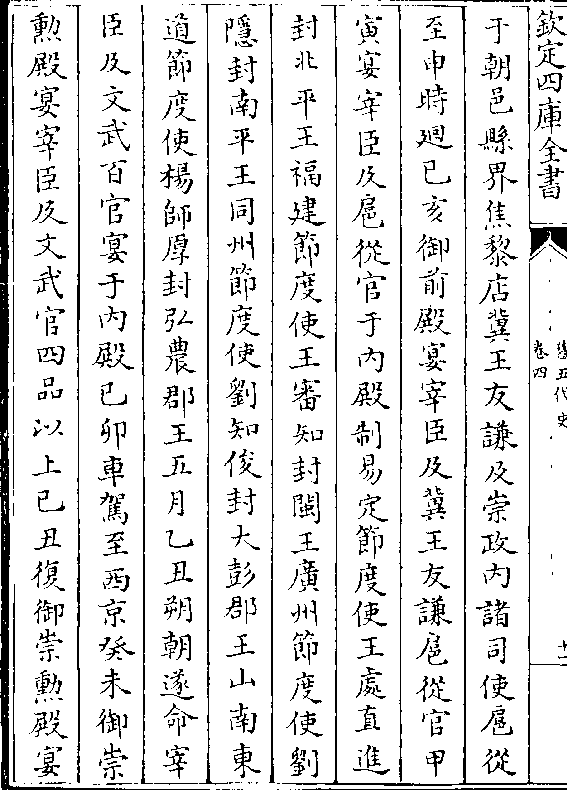 欽定四庫全書
舊五代史
卷四
十一
于朝邑縣界焦黎店冀王友謙及崇政内諸司使扈從
至申時廻己亥御前殿宴宰臣及冀王友謙扈從官甲
寅宴宰臣及扈從官于内殿制易定節度使王處直進
封北平王福建節度使王審知封閩王廣州節度使劉
隱封南平王同州節度使劉知俊封大彭郡王山南東
道節度使楊師厚封弘農郡王五月乙丑朔朝遂命宰
臣及文武百官宴于内殿己卯車駕至西京癸未御崇
勲殿宴宰臣及文武官四品以上己丑復御崇勲殿宴